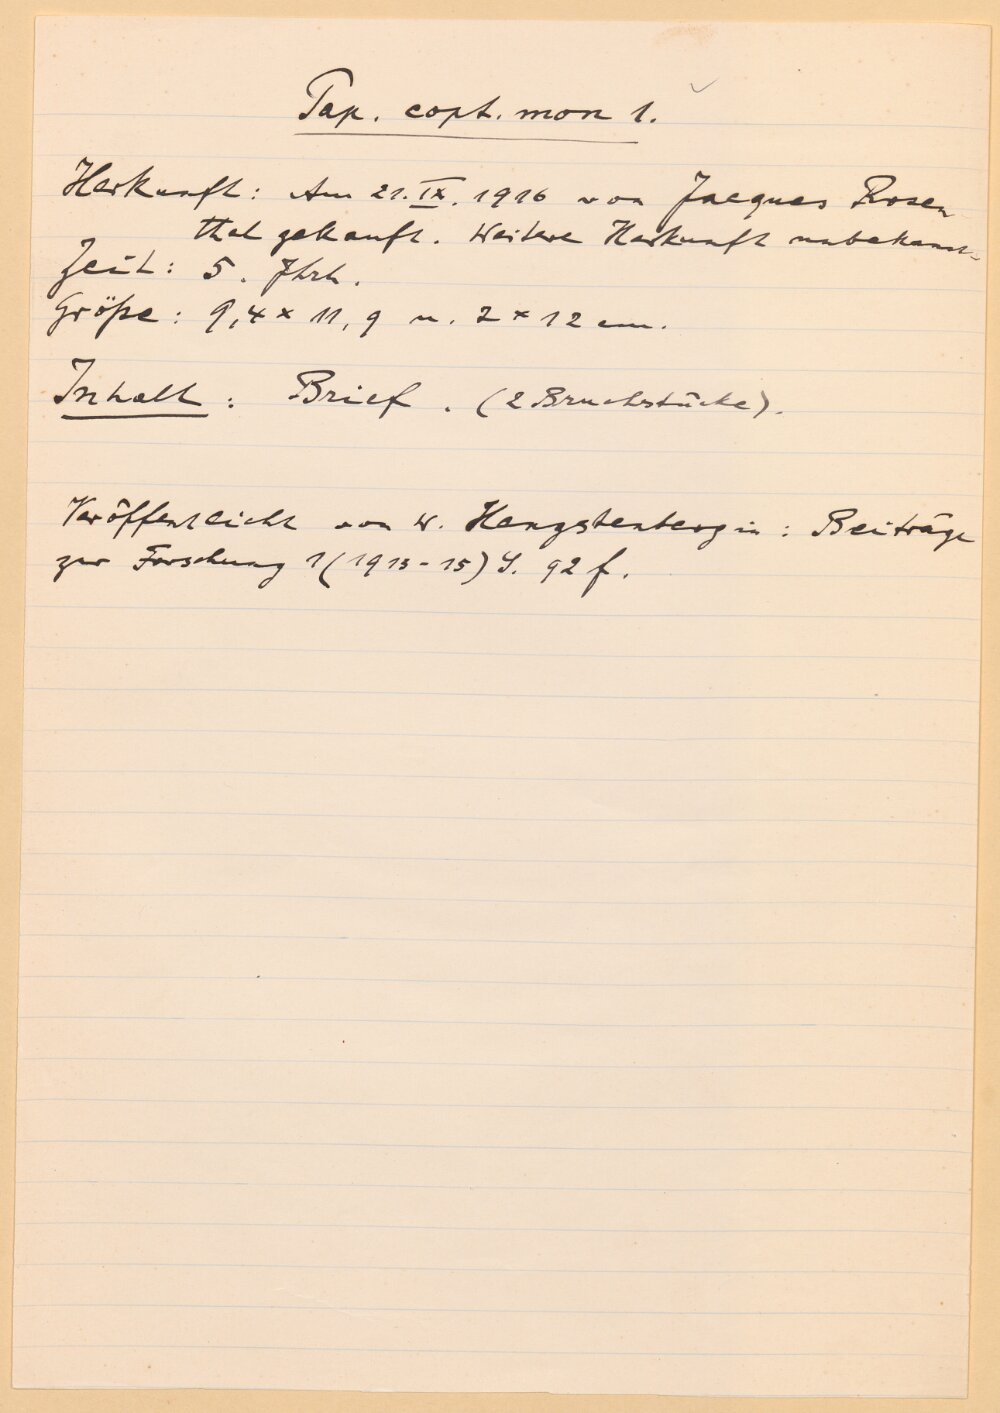 Pap. copt. mon 1.
Herkunft: Am 21. IX. 1916 von Jacques Rosen
thal gekauft. Weitere Herkunft unbekannt.
Zeit: 5. Jhrh.
Größe: 9,4 × 11,9 u. 2 × 12 cm.
Inhalt: Brief. (2 Bruchstücke).
Veröffentlicht von W. Hengstenberg in: Beiträge
zur Forschung 1 (1913-15) S. 92 f.